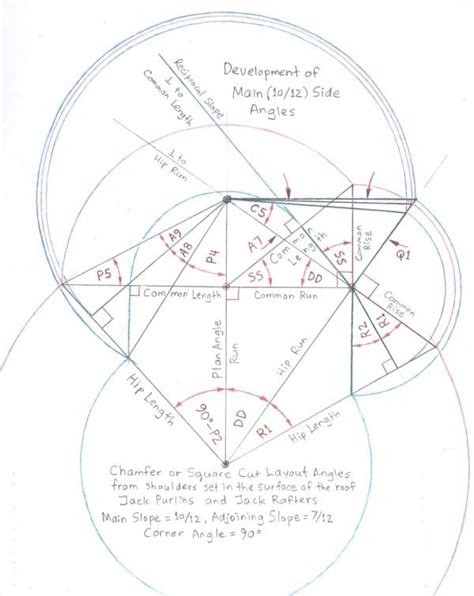 Development of
Main (10/12) Side
Angles
Reciprocal Slope
1 to
Common Length
1 to
Hip Run
C5
A9
A8
P4
A7
P5
SS
DD
Common
Length
Common
Rise
SS
Q1
Common Length
Common Run
Common
Rise
R2
R1
Plan Angle
Run
Hip Run
Hip Length
90°-P2
DD
R1
Hip Length
Chamfer or Square Cut Layout Angles
from shoulders set in the surface of the roof
Jack Purlins and Jack Rafters
Main Slope = 10/12, Adjoining Slope = 7/12
Corner Angle = 90°